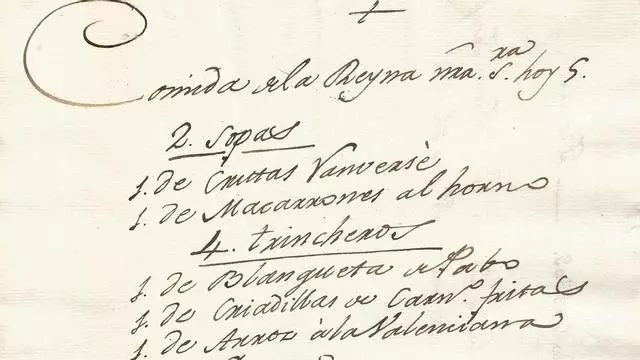 Comida de la Reyna nra. Sra. hoy 5.
2. Sopas
1. de Crutas Vanversè
1. de Macarrones al horno
4. trincheros
1. de Blanqueta de Pabo
1. de Criadillas de Carno. fritas
1. de Arroz à la Valenciana